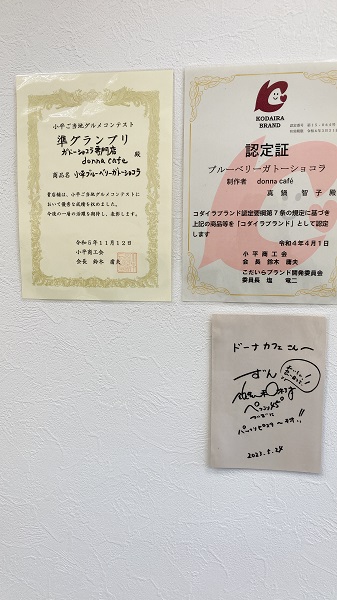 小平ご当地グルメコンテスト
準グランプリ
ガトーショコラ専門店
donna cafe 殿
商品名 小平ブルーベリーガトーショコラ
貴店舗は、小平ご当地グルメコンテストに
おいて優秀な成績を収めました。
今後の一層の活躍を期待し、表彰します。
令和5年11月12日
小平商工会
会長 鈴木 庸夫
KODAIRA
BRAND
認定証
ブルーベリーガトーショコラ
制作者 donna café
真鍋 智子 殿
コダイラブランド認定要綱第7条の規定に基づき
上記の商品等を「コダイラブランド」として認定
します
令和4年4月1日
小平商工会
会長 鈴木 庸夫
こだいらブランド開発委員会
委員長 塩 竜二
ドーナ カフェ さんへ
ずん